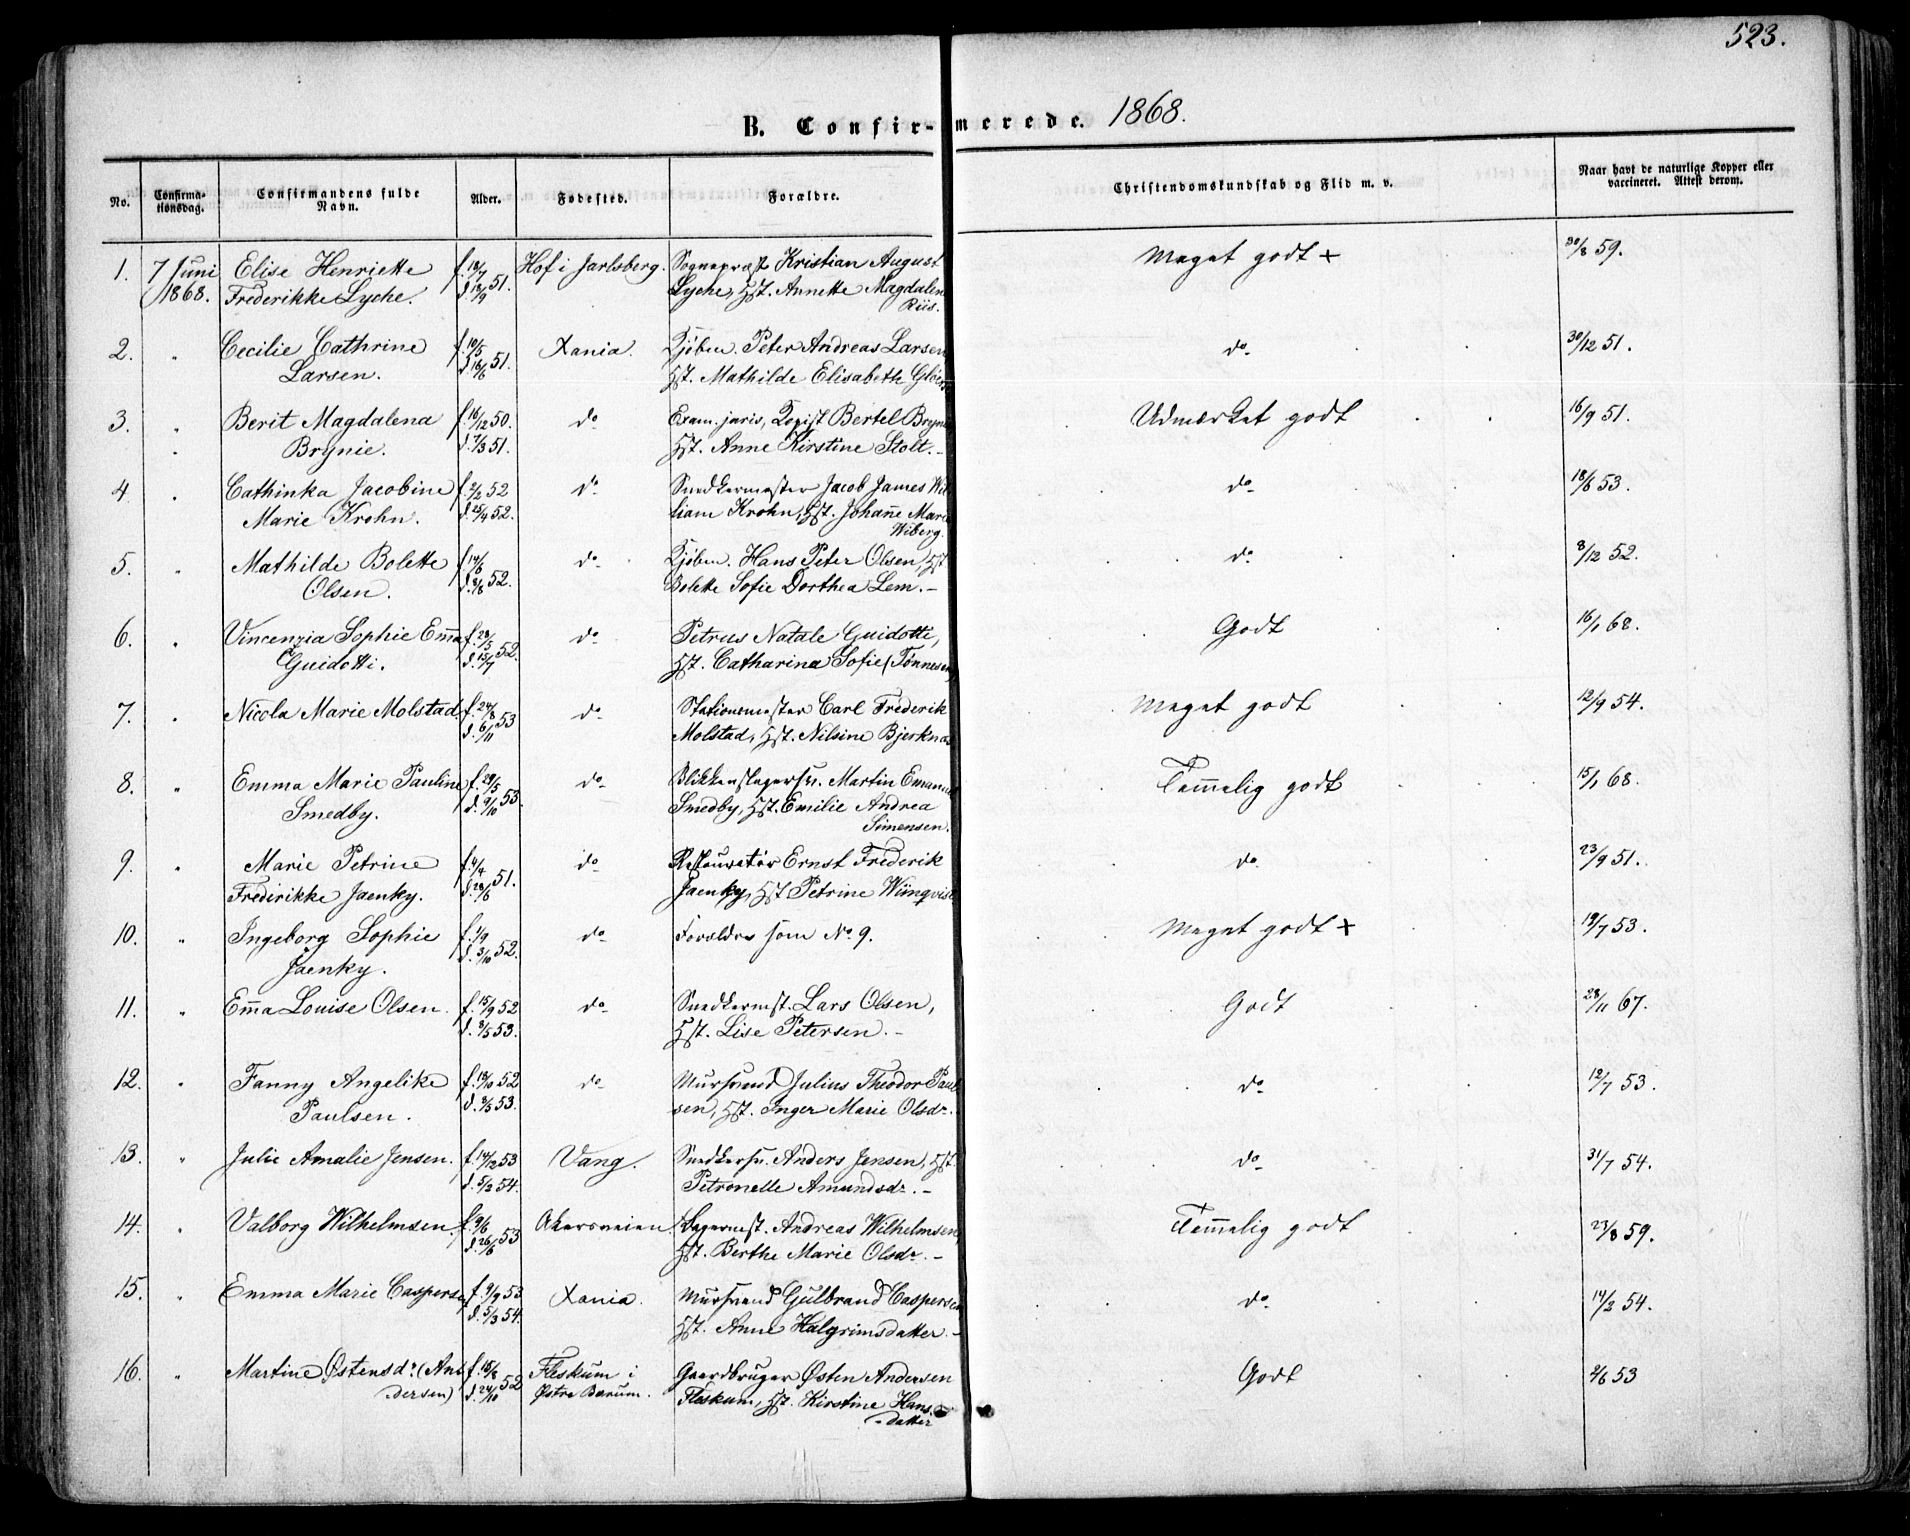 523.
B. Confirmerede. 1868.
No.
Confirmationsdag.
Confirmandens fulde Navn.
Alder.
Fødested.
Forældre.
Christendomskundskab og Flid m. v.
Naar havt de naturlige Kopper eller vaccineret. Attest derom.
1. 7 Juni Elise Henriette f. 18/7 51. Hof i Jarlsberg. Sognepræst Kristian August Meget godt + 30/8 59.
1868. Frederikke Lyche. d. 18/9 Lyche, Hst. Annette Magdalene
Riis.
2. " Cecilie Cathrine f. 10/5 51. Xania. Kjøbm. Peter Andreas Larsen do 30/12 51.
Larsen. d. 18/6 Hst. Mathilde Elisabeth
3. " Berit Magdalena f. 16/12 50. do Exam. juris, Kopist Bertel Brynie Udmærket godt 16/9 51.
" Brynie. d. 7/3 51. Hst. Anne Kirstine Stolt.-
4. " Cathinka Jacobine f. 2/2 52 do Snedkermester Jacob James Wil do 18/6 53.
Marie Krohn. d. 25/4 52. liam Krohn, Hst. Johanne Marie
Wiberg.
5. " Mathilde Bolette f. 14/6 52. do Kjøbm. Hans Peter Olsen, Hst do 8/12 52.
Olsen. d. 8/8 Bolette Sofie Dorthea Lem.-
6. " Vincenzia Sophie Emma f. 23/5 52. do Petrus Natale Guidotti, Godt 16/1 68.
Guidotti. d. 15/7 Hst. Catharina Sofie Tønnesen
7. " Nicola Marie Molstad. f. 24/8 53 do Stationsmester Carl Frederik Meget godt 12/9 54.
d. 6/11 Molstad, Hst. Nilsine Bjerknæs
8. " Emma Marie Pauline f. 29/5 53. do Blikkenslagersv. Martin Emanuel Temmelig godt 15/1 68.
Smedby. d. 9/10 Smedby, Hst. Emilie Andrea
Simensen.
9. " Marie Petrine f. 4/4 51. do Restauratør Ernst Frederik do 23/9 51.
Fredirikke Jaenky. d. 28/6 Jaenky, Hst Petrine Wünqvist
10. " Ingeborg Sophie f. 1/9 52. do Forældre som No 9. Meget godt + 19/7 53.
Jaenky. d. 3/10
11. " Emma Louise Olsen. f. 15/9 52 do Snedkermst. Lars Olsen, Godt 23/11 67.
d. 8/5 53. Hst. Lise Petersen.-
12. " Fanny Angelike f. 18/10 52 do Mursvend Julius Theodor Paul do 12/7 53.
Paulsen. d. 8/5 53. sen, Hst. Inger Marie Olsdr.
13. " Julie Amalie Jensen. f. 14/12 53 Vang. Snedkersv. Anders Jensen, Hst. do 31/7 54.
d. 5/2 54. Petronelle Amundsdr.-
14. " Valborg Wilhelmsen. f. 9/6 53 Akersveien Bagermst. Andreas Wilhelmsen, Temmelig godt 23/8 59.
d. 26/6 Hst. Berthe Marie Olsdr.-
15. " Emma Marie Caspersen f. 9/9 53 Xania. Mursvend Gulbrand Caspersen do 14/2 54.
d. 5/3 54. Hst. Anne Halgrimsdatter.-
16. " Martine Østensdr. (An f. 15/8 52 Fleskum i Gaardbruger Østen Andersen Godt 2/6 53
dersen) d. 24/10 Østre Bærum. Fleskum, Hst. Kirstine Hans
datter